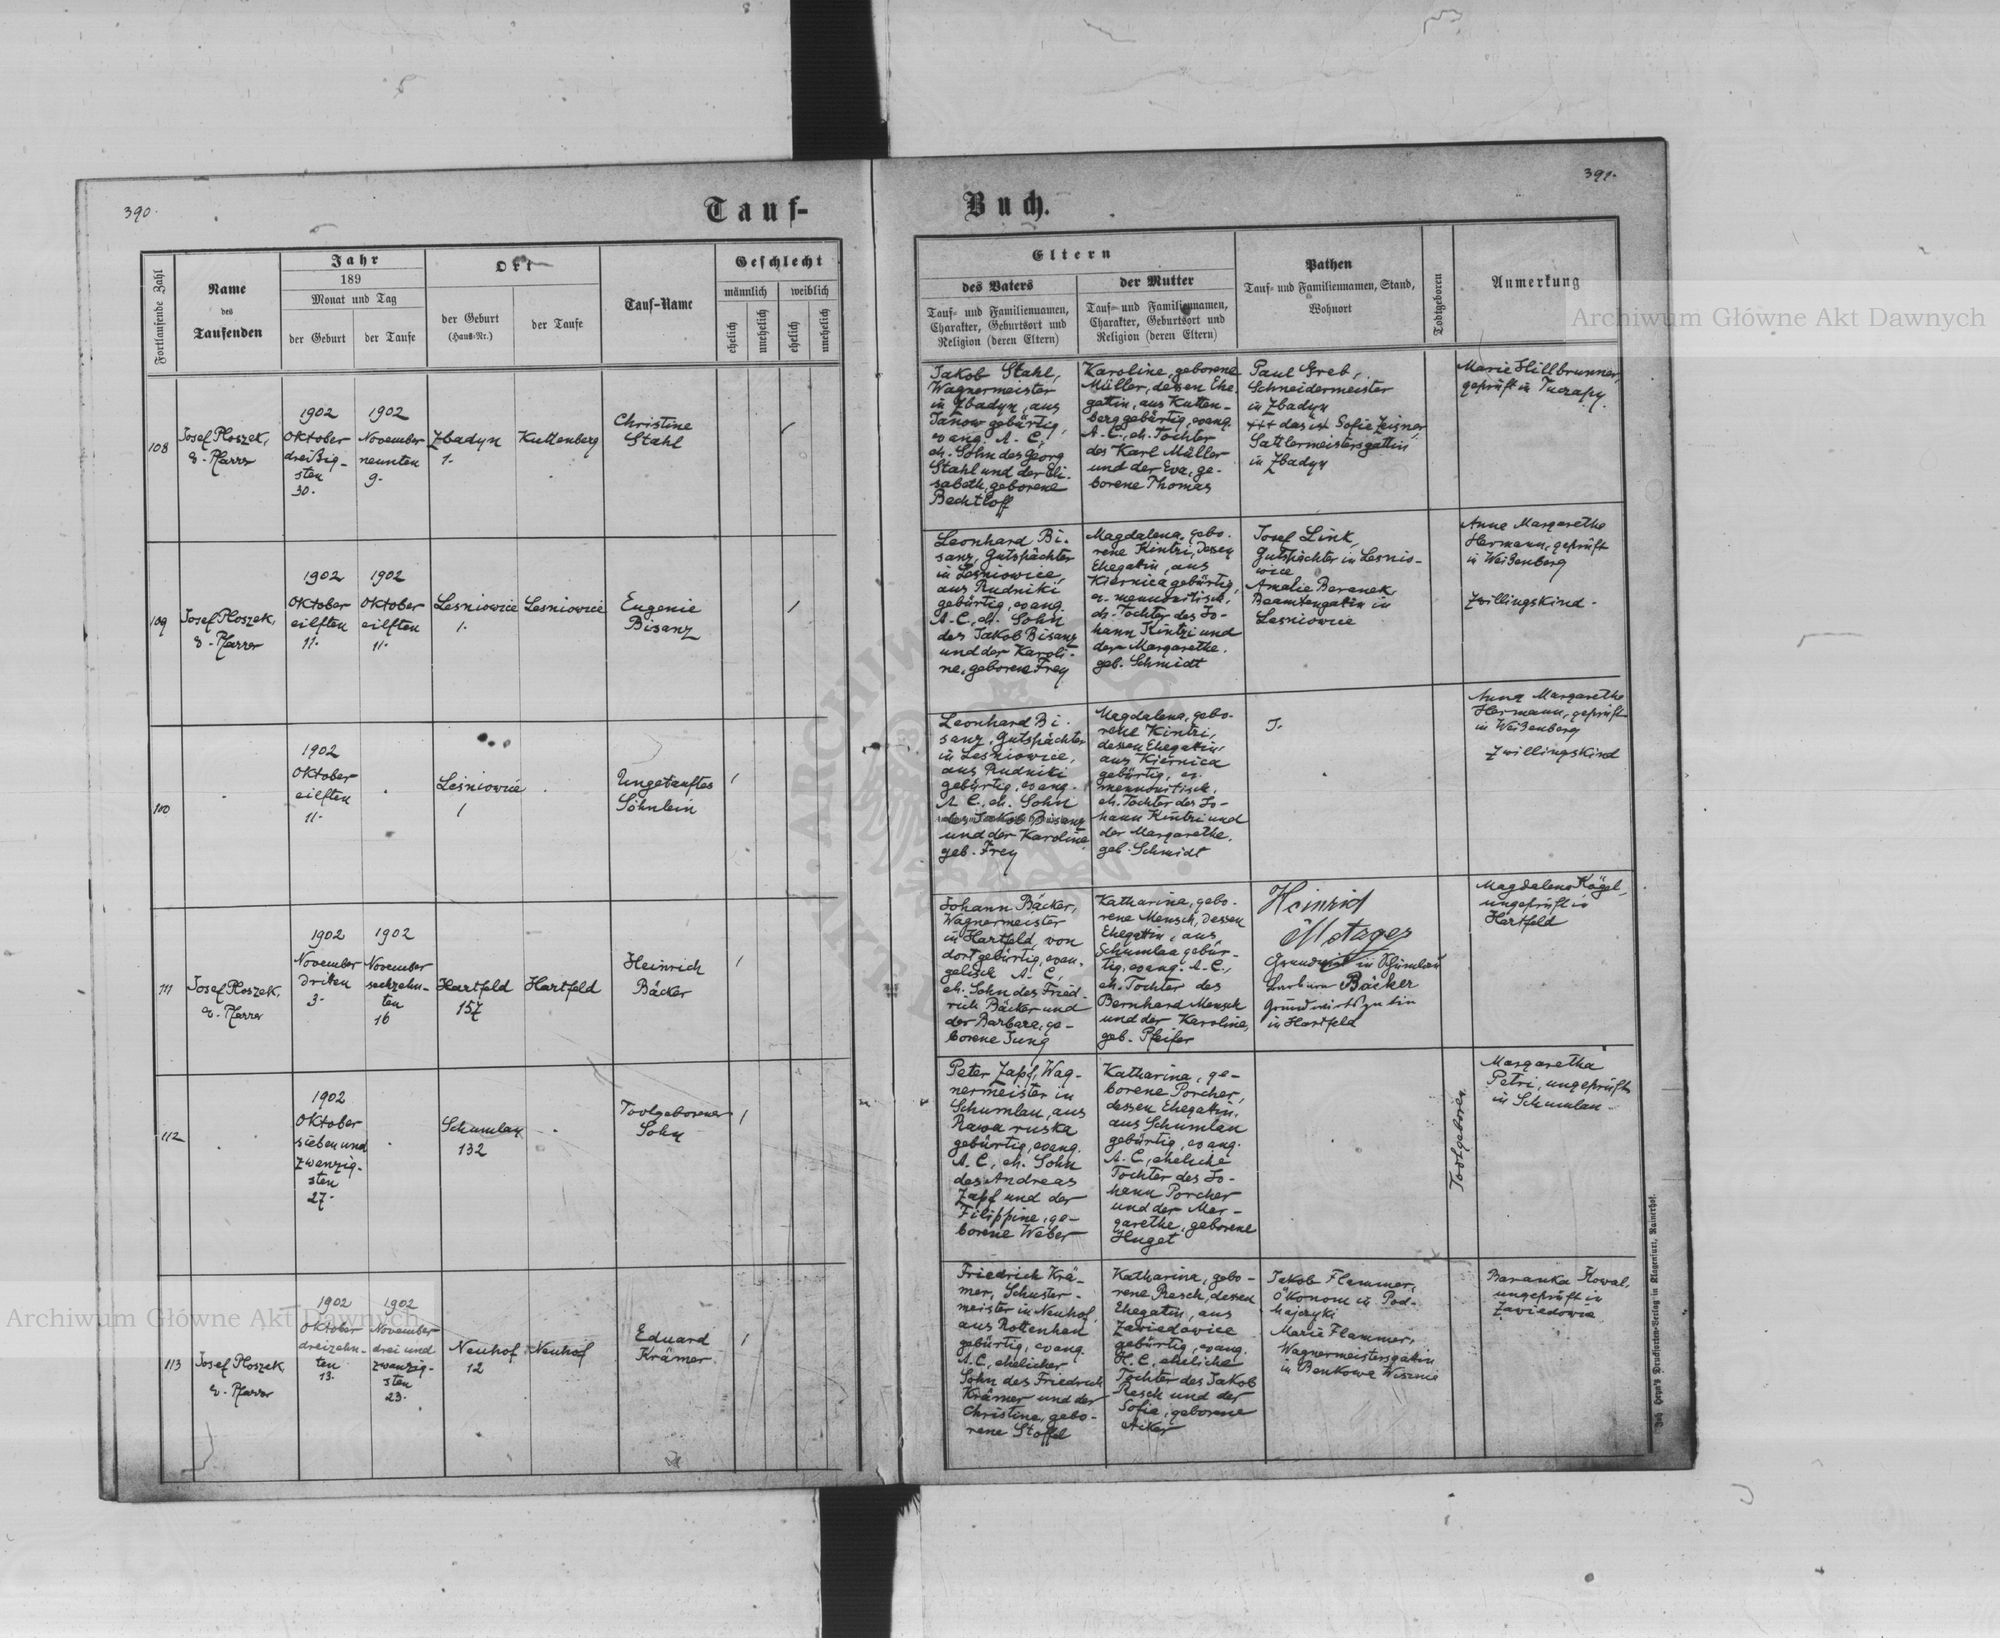 390.
391.
Tauf-
Buch.
Fortlaufende Zahl
Name
des
Taufenden
Jahr
189
Monat und Tag
der Geburt
der Taufe
Ort
der Geburt
(Haus-Nr.)
der Taufe
Tauf-Name
Geschlecht
männlich
weiblich
ehelich
unehelich
ehelich
unehelich
Eltern
des Vaters
Tauf- und Familiennamen,
Charakter, Geburtsort und
Religion (deren Eltern)
der Mutter
Tauf- und Familiennamen,
Charakter, Geburtsort und
Religion (deren Eltern)
Pathen
Tauf- und Familiennamen, Stand,
Wohnort
Todtgeboren
Anmerkung
108
Josef Ploszek,
e. Pfarrer
1902
Oktober
dreißig-
sten
30.
1902
November
neunten
9.
Zbadyn
1.
Kuttenberg
Christine
Stahl
Jakob Stahl,
Wagnermeister
in Zbadyn, aus
Janow gebürtig,
evang. A. C.,
eh. Sohn des Georg
Stahl und der Eli-
sabeth, geborene
Bechtloff
Karoline, geborene
Müller, dessen Ehe-
gattin, aus Kutten-
berg gebürtig, evang.
A. C., eh. Tochter
des Karl Müller
und der Eva, ge-
borene Thomas
Paul Greb,
Schneidermeister
in Zbadyn
+++ das ist Sofie Zeisner,
Sattlermeistersgattin
in Zbadyn
Marie Hillbrunner,
geprüft in Tucrapy.
109
Josef Ploszek,
e. Pfarrer
1902
Oktober
eilften
11.
1902
Oktober
eilften
11.
Lesniowice
1.
Lesniowice
Eugenie
Bisanz
Leonhard Bi-
sanz, Gutspächter
in Lesniowice,
aus Rudniki
gebürtig, evang.
A. C., eh. Sohn
des Jakob Bisanz
und der Karoli-
ne, geborene Frey
Magdalena, gebo-
rene Kintzi, dessen
Ehegattin, aus
Kiernica gebürtig,
ev. mennonitisch,
eh. Tochter des Jo-
hann Kintzi und
der Margarethe,
geb. Schmidt
Josef Link,
Gutspächter in Lesnio-
wice
Amalie Beranek,
Beamtengattin in
Lesniowice
Anna Margarethe
Hermann, geprüft
in Weißenberg
Zwillingskind.
100
1902
Oktober
eilften
11.
Lesniowice
1
Ungetauftes
Söhnlein
Leonhard Bi-
sanz, Gutspächter
in Lesniowice,
aus Rudniki
gebürtig, evang.
A. C., eh. Sohn
des Jakob Bisanz
und der Karoline,
geb. Frey
Magdalena, gebo-
rene Kintzi,
dessen Ehegattin,
aus Kiernica
gebürtig, ev.
mennonitisch,
eh. Tochter des Jo-
hann Kintzi und
der Margarethe,
geb. Schmidt
Anna Margarethe
Hermann, geprüft
in Weißenberg
Zwillingskind
111
Josef Ploszek,
e. Pfarrer
1902
November
dritten
3.
1902
November
sechzehn-
ten
16
Hartfeld
157
Hartfeld
Heinrich
Bäcker
Johann Bäcker,
Wagnermeister
in Hartfeld, von
dort gebürtig, evan-
gelisch A. C.,
eh. Sohn des Fried-
rich Bäcker und
der Barbara, ge-
borene Jung
Katharina, gebo-
rene Mensch, dessen
Ehegattin, aus
Schumlau gebür-
tig, evang. A. C.,
eh. Tochter des
Bernhard Mensch
und der Karoline,
geb. Pfeifer
Heinrich
Metzger
Grundwirt in Schumlau
Barbara Bäcker
Grundwirtsgattin
in Hartfeld
Magdalena Kögel,
ungeprüft in
Hartfeld
112
1902
Oktober
sieben und
zwanzig-
sten
27.
Schumlau
132
Todtgeborener
Sohn
Peter Zapf, Wag-
nermeister in
Schumlau, aus
Rawa ruska
gebürtig, evang.
A. C., eh. Sohn
des Andreas
Zapf und der
Filippine, ge-
borene Weber
Katharina, ge-
borene Porcher,
dessen Ehegattin,
aus Schumlau
gebürtig, evang.
A. C., eheliche
Tochter des Jo-
hann Porcher
und der Mar-
garethe, geborene
Huget
Todtgeboren
Margaretha
Petri, ungeprüft
in Schumlau
113
Josef Ploszek,
e. Pfarrer
1902
Oktober
dreizehn-
ten
13.
1902
November
drei und
zwanzig-
sten
23.
Neuhof
12
Neuhof
Eduard
Krämer
Friedrich Krä-
mer, Schuster-
meister in Neuhof,
aus Rottenhan
gebürtig, evang.
A. C., ehelicher
Sohn des Friedrich
Krämer und der
Christine, gebo-
rene Stoffel
Katharina, gebo-
rene Resch, dessen
Ehegattin, aus
Zawiedowice
gebürtig, evang.
H. C., eheliche
Tochter des Jakob
Resch und der
Sofie, geborene
Aiker
Jakob Flammer,
Ökonom in Pod-
hajczyki
Marie Flammer,
Wagnermeistersgattin
in Benkowa Wisznia
Baranka Kowal,
ungeprüft in
Zawiedowice
Joh. Heyn's Drucksorten-Verlag in Klagenfurt, Rainerhof.
Archiwum Główne Akt Dawnych
Archiwum Główne Akt Dawnych